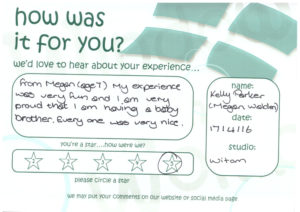 how was
it for you?
we'd love to hear about your experience...
From Megan (age 7) My experience
was very fun and I am very
proud that I am having a baby
brother. Every one was very nice.
name:
Kelly Parker
(Megan Weldon)
date:
17/4/16
studio:
Witham
you're a star....how were we?
please circle a star
we may put your comments on our website or social media page